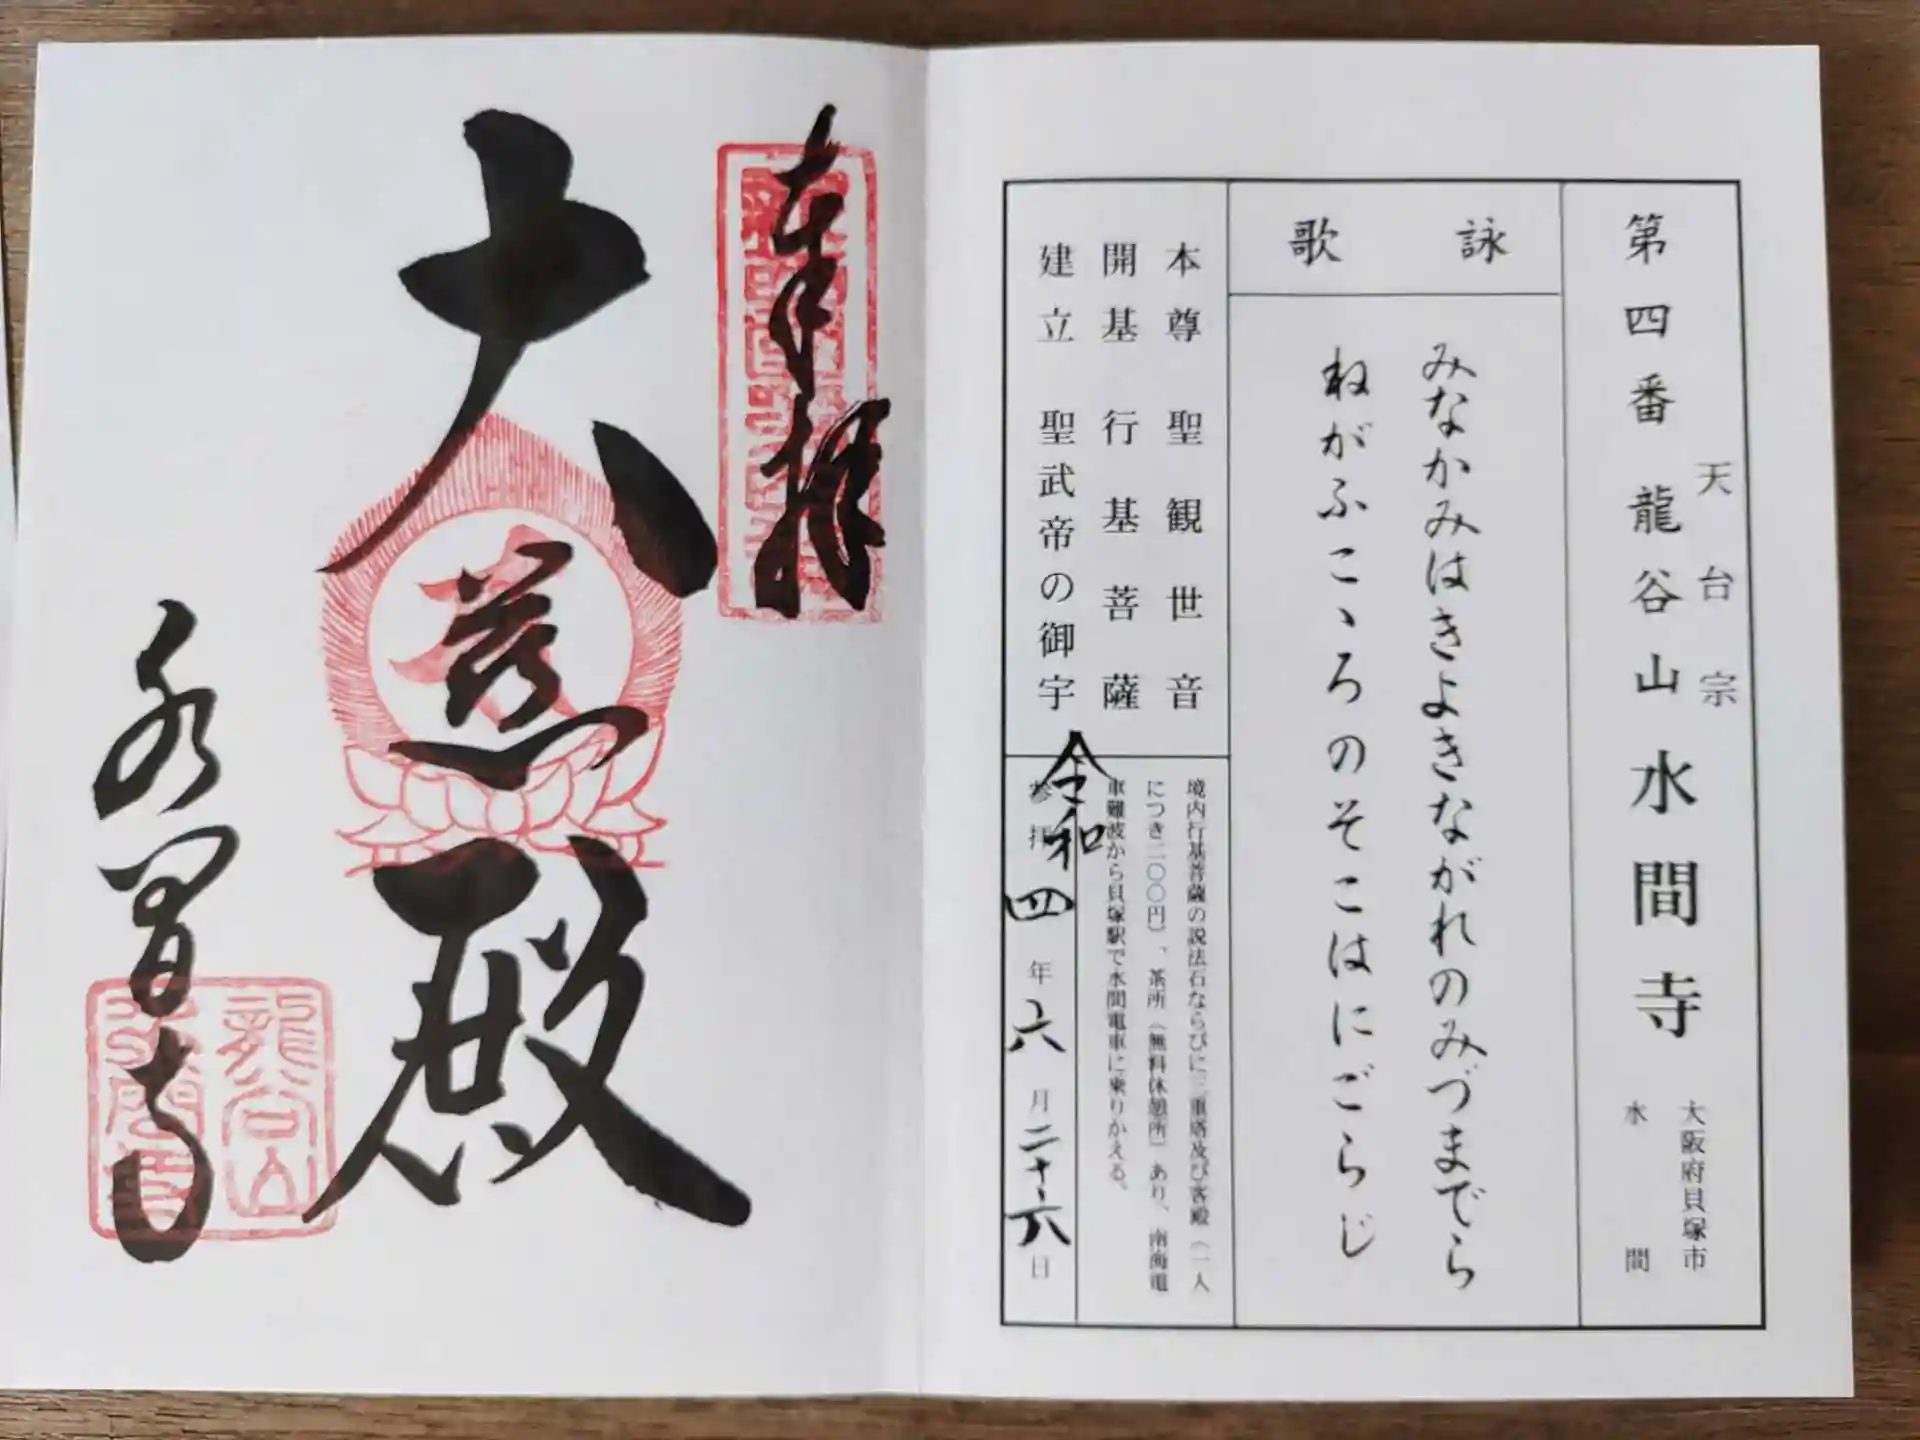 天台宗
第四番 龍谷山 水間寺
大阪府貝塚市
水間
詠歌
みなかみはきよきながれのみづまでら
ねがふこゝろのそこはにごらじ
本尊 聖観世音
開基 行基菩薩
建立 聖武帝の御宇
境内行基菩薩の説法石ならびに三重塔及び客殿（一人
につき二〇〇円）、茶所（無料休憩所）あり、南海電
車難波から貝塚駅で水間電車に乗りかえる。
参拝 令和四年六月二十六日
奉拝
大慈殿
水間寺
龍谷山
水間寺